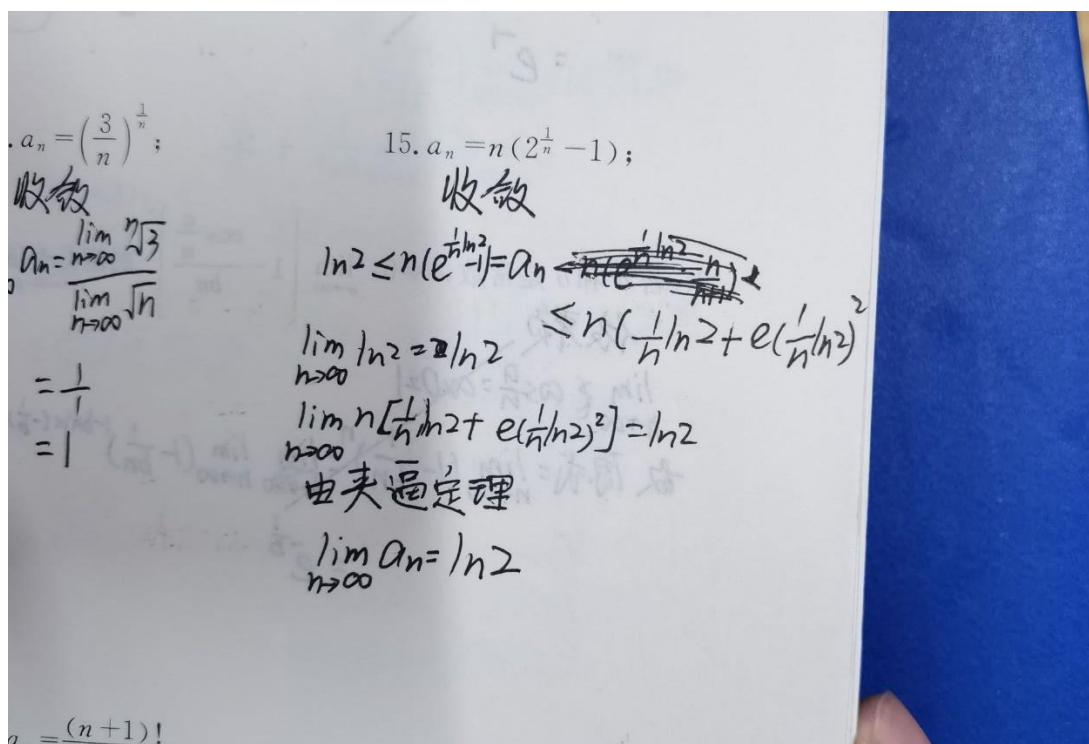 . aₙ = (3/n)^(1/n);
收敛
aₙ = lim_{n→∞} ⁿ√3 / lim_{n→∞} √n
= 1/1
= 1
15. aₙ = n(2^(1/n) − 1);
收敛
ln2 ≤ n(e^(1/n ln2) −1) = aₙ
≤ n(1/n ln2 + e(1/n ln2)²
lim_{n→∞} ln2 = ln2
lim_{n→∞} n[1/n ln2 + e(1/n ln2)²] = ln2
由夹逼定理
lim_{n→∞} aₙ = ln2
= (n+1)!